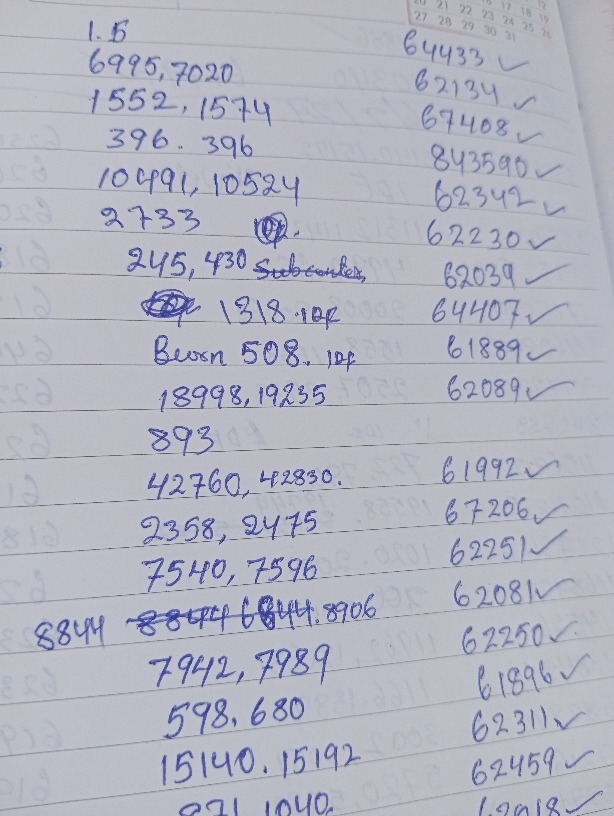 20 21 22 23 24 25 26
27 28 29 30 31
1.5 64433 ✓
6995,7020 62134 ✓
1552, 1574 67408 ✓
396. 396 843590 ✓
10491, 10524 62342 ✓
2733 62230 ✓
245, 430 62039 ✓
1318. IDF 64407 ✓
508. IDF 61889 ✓
18998, 19235 62089 ✓
893
42760, 42830. 61992 ✓
2358, 2475 67206 ✓
7540, 7596 62251 ✓
8844 8844 6844. 8906 62081 ✓
7942, 7989 62250 ✓
598. 680 61896 ✓
15140. 15192 62311 ✓
971, 1040. 62459 ✓